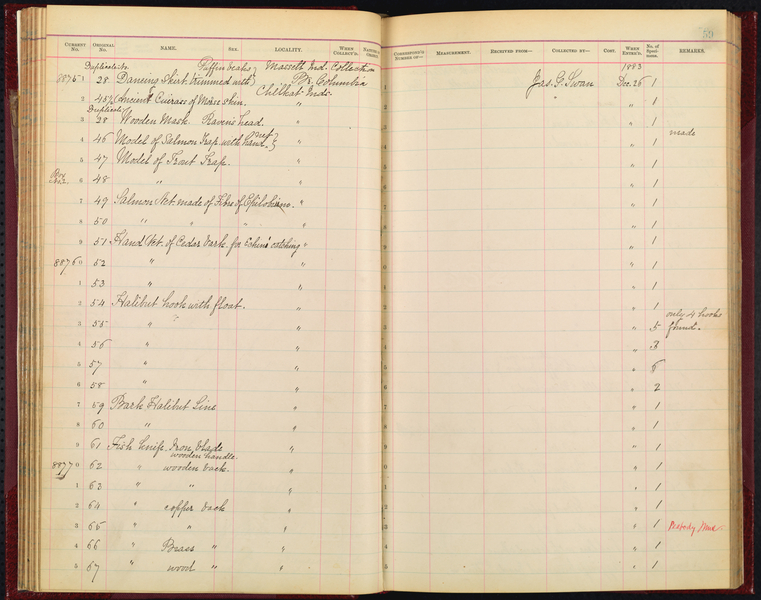 59
CURRENT No. ORIGINAL No. NAME. SEX. LOCALITY. WHEN COLLECT'D. NATURE OF OBJECT. CORRESPOND'G NUMBER OF— MEASUREMENT. RECEIVED FROM— COLLECTED BY— COST. WHEN ENTER'D. No. of Specimens. REMARKS.
Duplicate No Puffin beaks Massett Ind. Collection 1883
88751 28 Dancing Skirt trimmed with Br. Columbia 1 Jas. G. Swan Dec. 26 1
2 457 Ancient Cuirass of Moose skin. Chilkat Inds. " " 1
Duplicate
3 28 Wooden Mask. Raven's head. " " 1
4 46 Model of Salmon Trap. with hand net } " " 1 made
5 47 Model of Trout Trap. " " 1
6 48 " " " 1
7 49 Salmon Net made of Fibre of Epilobium. " " 1
8 50 " " " " " " 1
9 51 Hand Net of Cedar bark for catching " " 1
88760 52 " " " 1
1 53 " " " 1
2 54 Halibut hook with float. " " 1 only 4 hooks
3 55 " " " 5 found.
4 56 " " " 3
5 57 " " " 5
6 58 " " " 2
7 59 Bark Halibut Line " " 1
8 60 " " " 1
9 61 Fish knife Iron blade " " 1
wooden handle.
88770 62 " wooden back. " " 1
1 63 " " " " 1
2 64 " copper back " " 1
3 65 " " " " 1 Peabody Mus.
4 66 " Brass " " " 1
5 67 " wood " " " 1